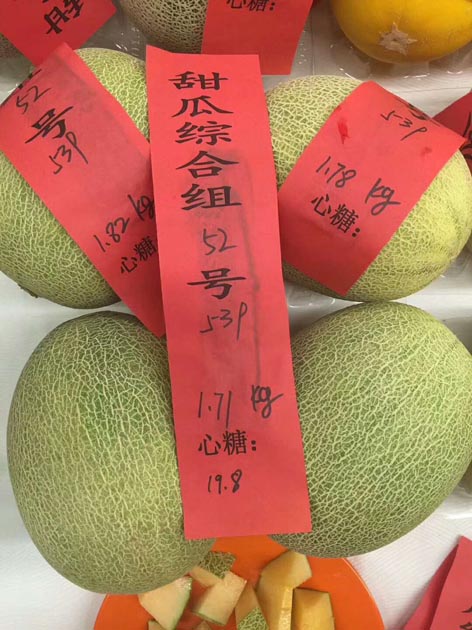 心糖:
52
号
53P
1.82 kg
心糖
甜瓜综合组
52
号
53P
1.71 kg
心糖:
19.8
53P
1.78 kg
心糖: